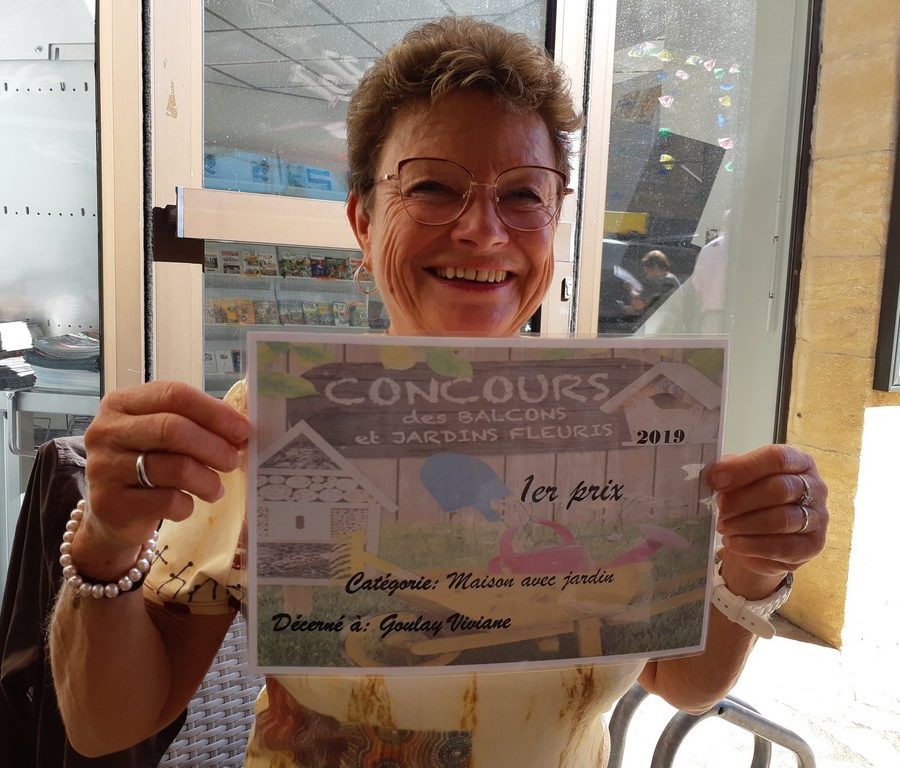 CONCOURS
des BALCONS
et JARDINS FLEURIS 2019
1er prix
Catégorie: Maison avec jardin
Décerné à: Goulay Viviane